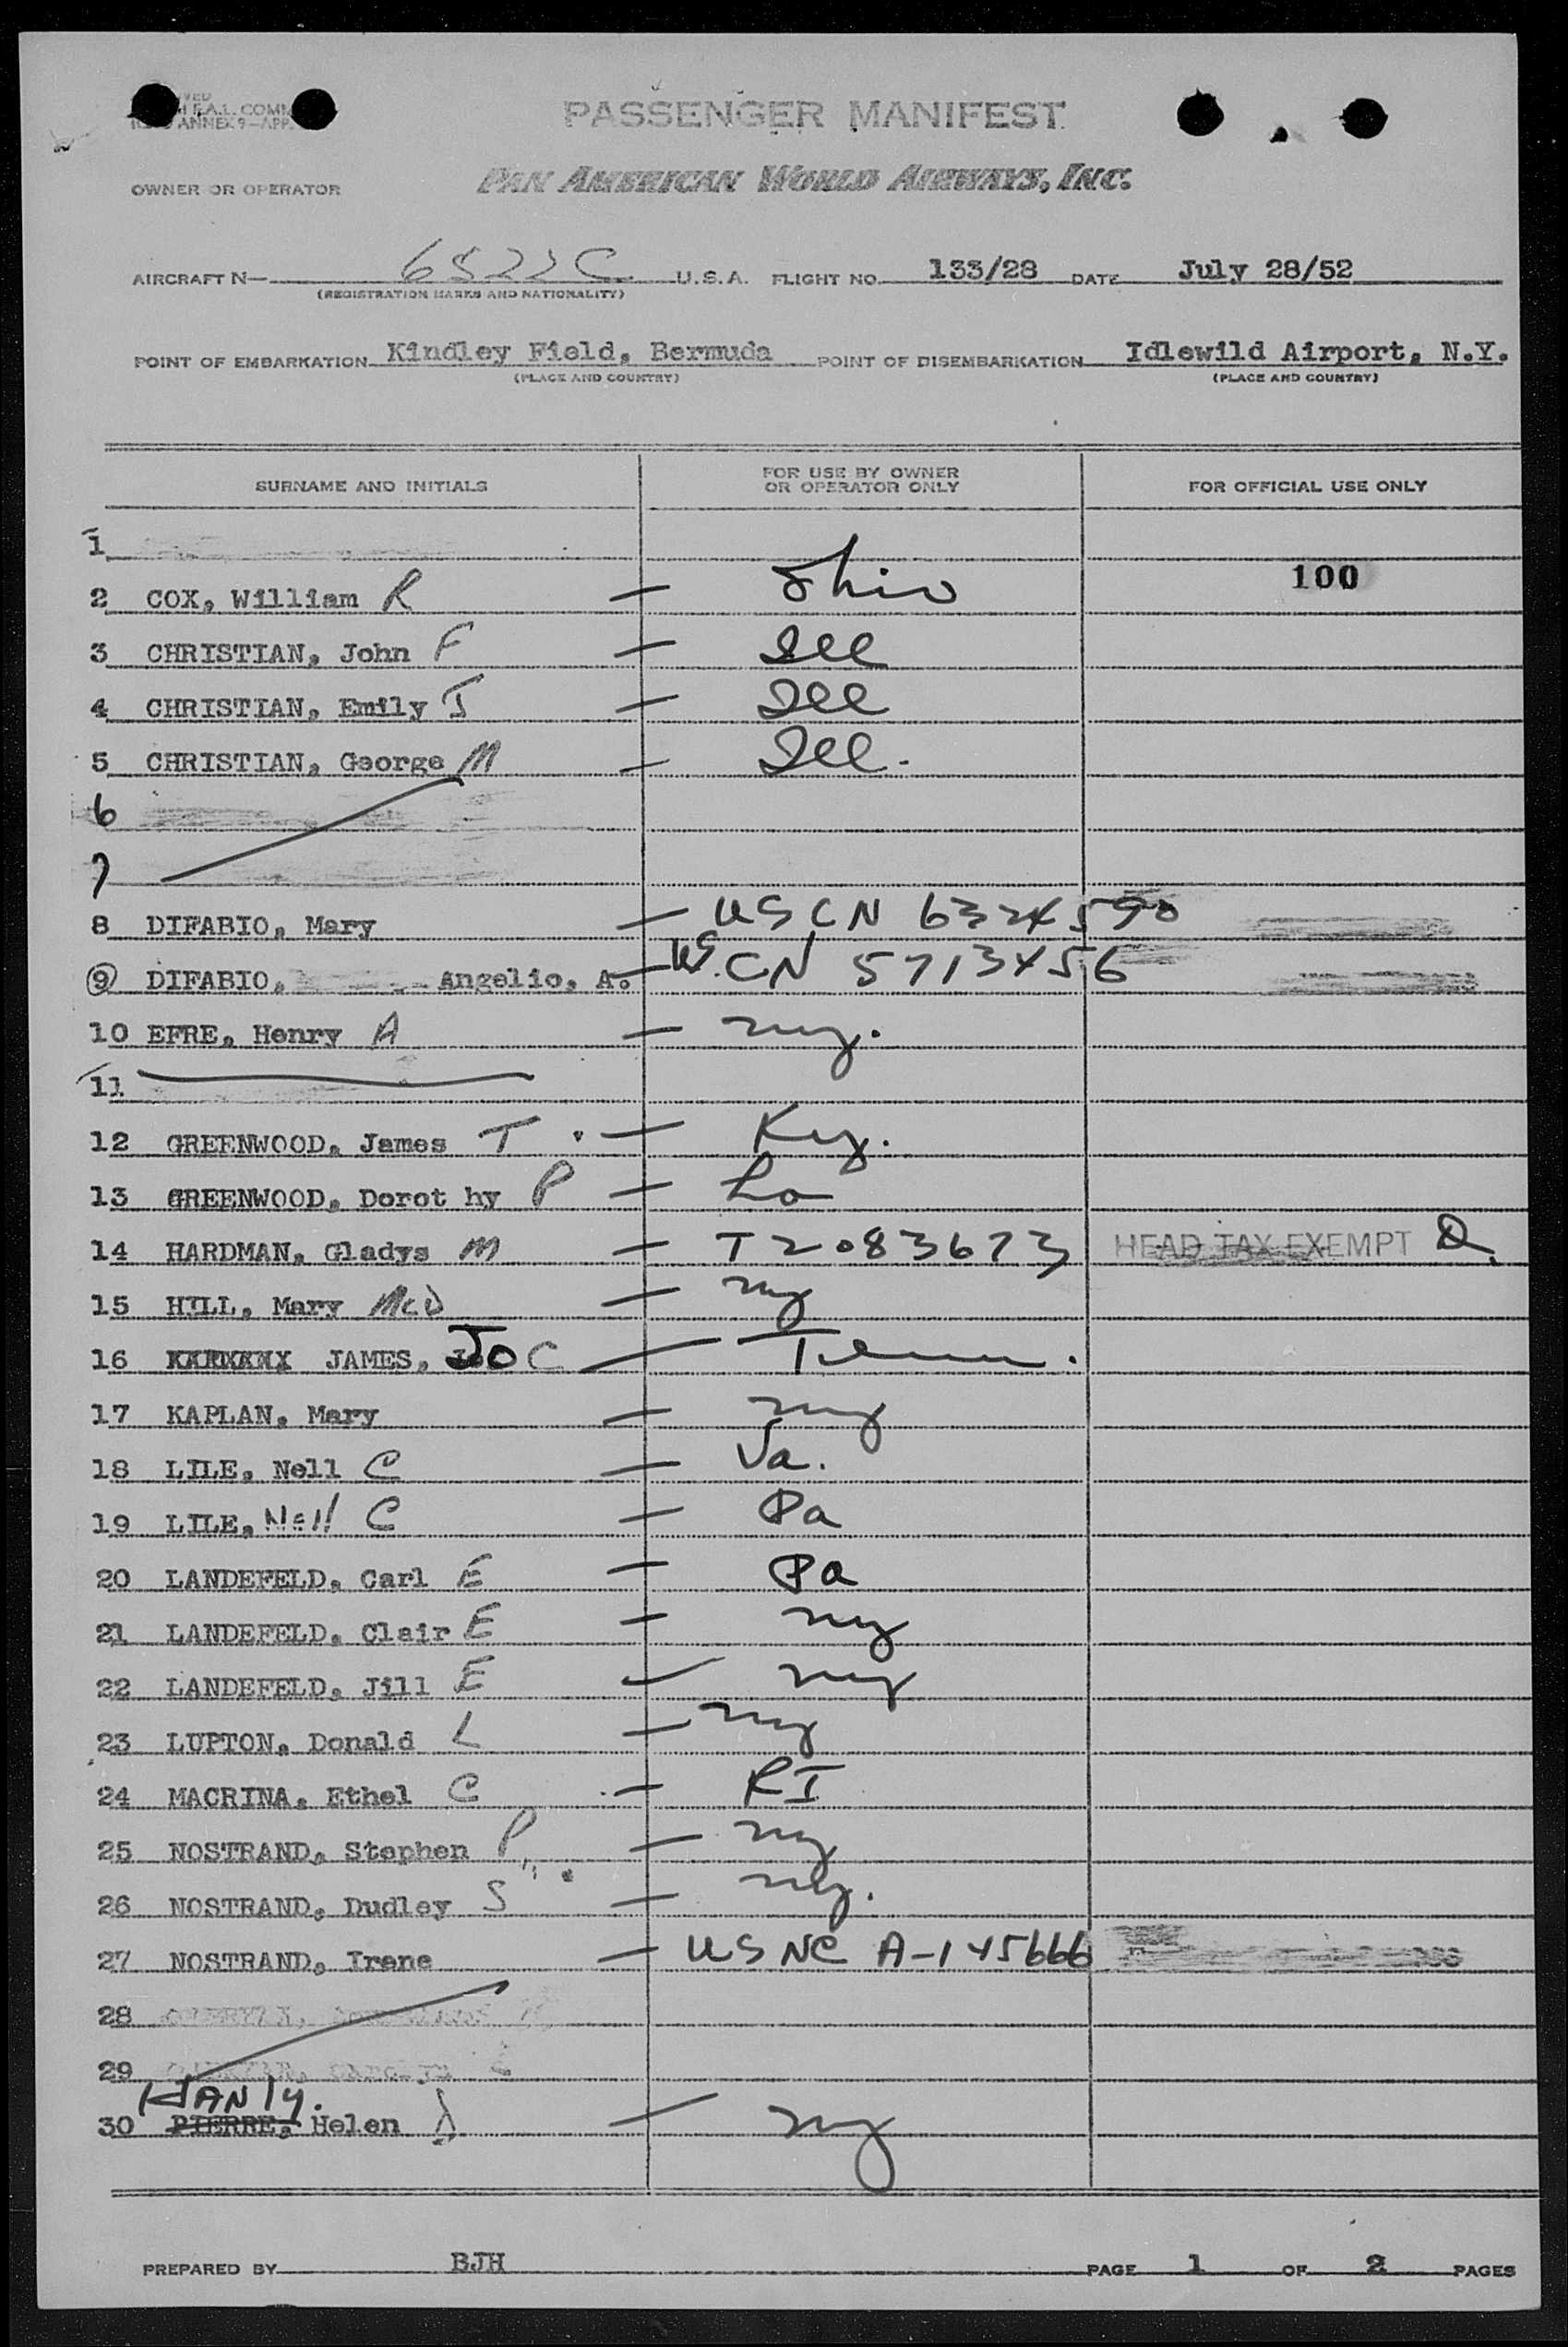 PASSENGER MANIFEST
ANNEX 9—APP.
OWNER OR OPERATOR PAN AMERICAN WORLD AIRWAYS, INC.
AIRCRAFT N— 6522C U.S.A. FLIGHT NO. 133/28 DATE July 28/52
(REGISTRATION MARKS AND NATIONALITY)
POINT OF EMBARKATION Kindley Field, Bermuda POINT OF DISEMBARKATION Idlewild Airport, N.Y.
(PLACE AND COUNTRY) (PLACE AND COUNTRY)
SURNAME AND INITIALS FOR USE BY OWNER OR OPERATOR ONLY FOR OFFICIAL USE ONLY
1
2 COX, William R — Ohio 100
3 CHRISTIAN, John F — Ill
4 CHRISTIAN, Emily J — Ill
5 CHRISTIAN, George M — Ill.
6
7
8 DIFABIO, Mary — US CN 6324590
9 DIFABIO, Angelio, A. — US. CN 5713456
10 EFRE, Henry A — ny.
11
12 GREENWOOD, James T — Ky.
13 GREENWOOD, Dorot hy P — La
14 HARDMAN, Gladys M — T2083673 HEAD TAX EXEMPT
15 HILL, Mary McD — ny
16 JAMES, Jo C — Tenn.
17 KAPLAN, Mary — ny
18 LILE, Nell C — Va.
19 LILE, Nell C — Pa
20 LANDEFELD, Carl E — Pa
21 LANDEFELD, Clair E — ny
22 LANDEFELD, Jill E — ny
23 LUPTON, Donald L — ny
24 MACRINA, Ethel C — RI
25 NOSTRAND, Stephen P — ny
26 NOSTRAND, Dudley S — ny.
27 NOSTRAND, Irene — US NC A-145666
28
29
HANLY.
30 PIERRE, Helen — ny
PREPARED BY BJH PAGE 1 OF 2 PAGES